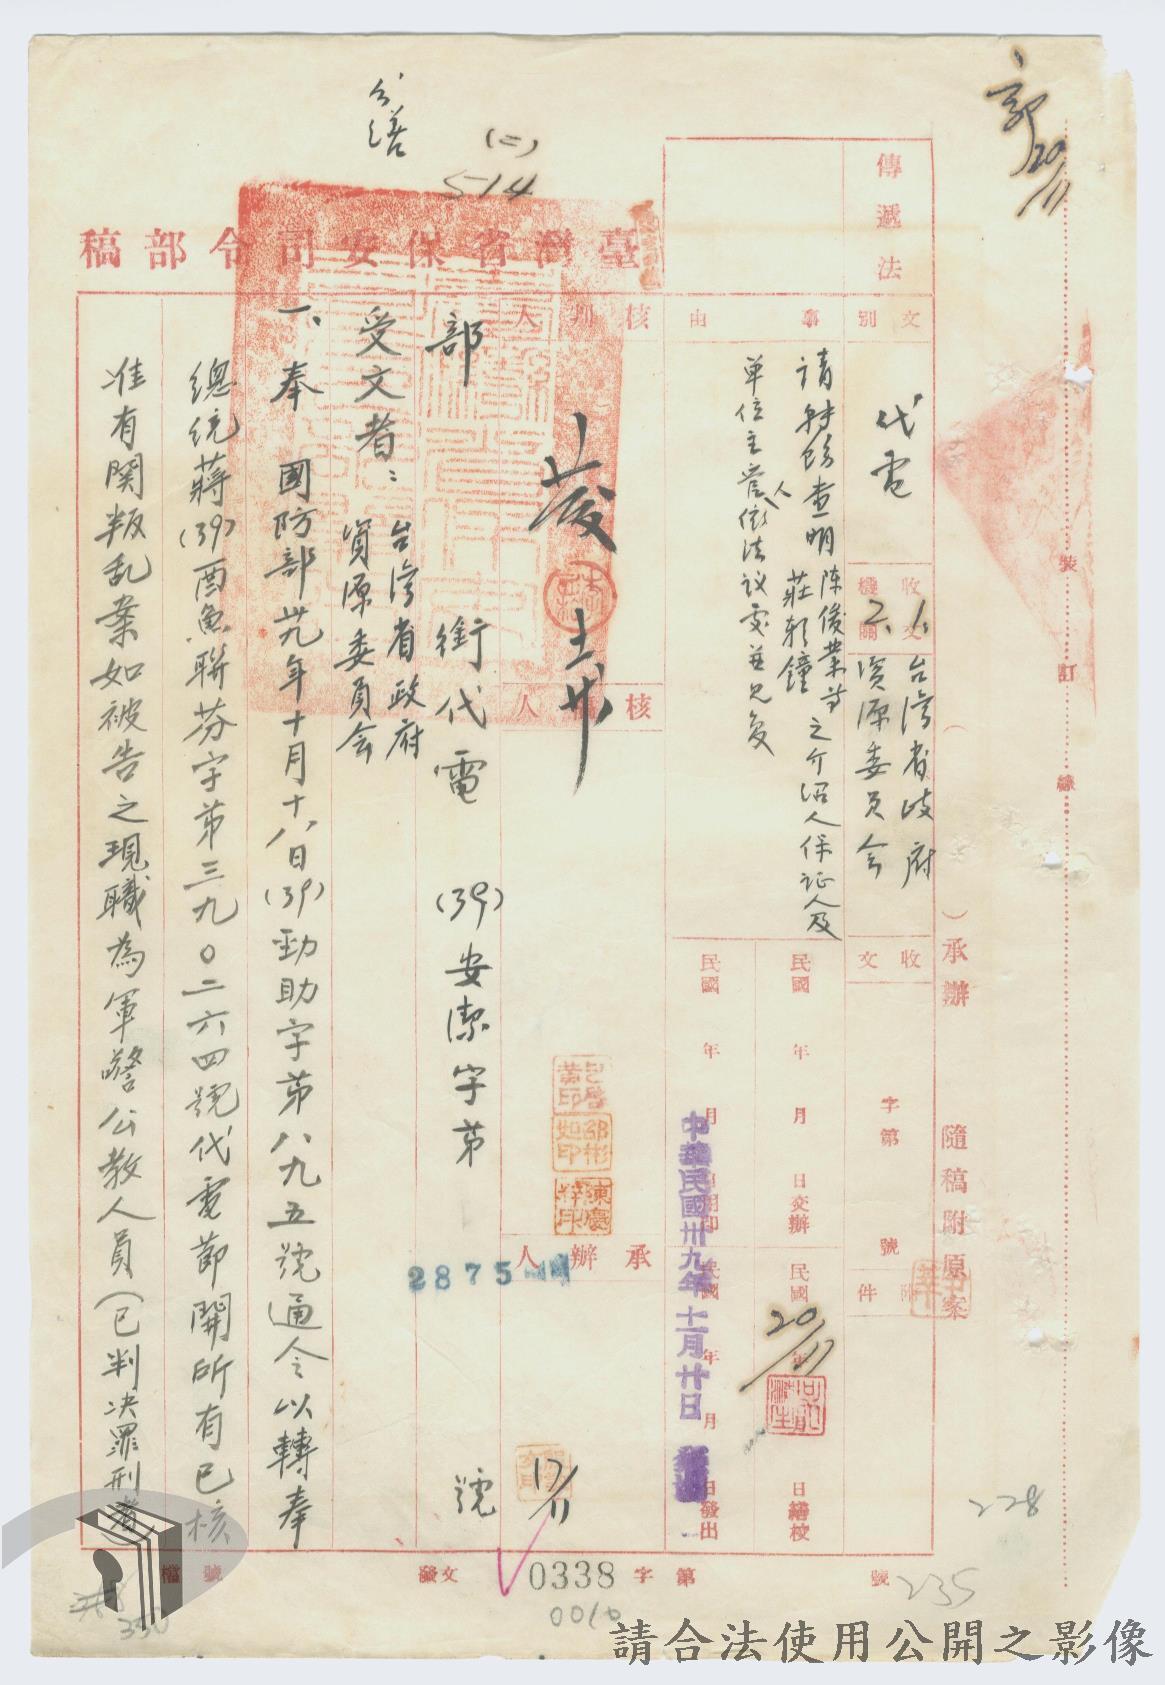 臺灣省保安司令部稿
傳遞法
文別
代電
收文機關
1. 台湾省政府
2. 资源委員会
收文
字第 號
附件
事由
请转飭查明陈俊業等之介绍人保证人及
莊
鐘
单位主官
人
依法议处并见复
民國 年 月 日交辦
民國 年 月 日繕校
民國 年 月 日用印
民國 年 月 日發出
20/11
中華民國卅九年十一月廿日
核判人
核稿人
承辦人
2875
17/11
(二)
514
部 銜代電 (39)安潔字第 號
受文者：台湾省政府
資源委員会
一、奉 國防部卅九年十月十八日(39)勁助字第八九五號通令以轉奉
總统蔣(39)酉魚聯芬字第三九0二六四號代電節開所有已核
准有関叛乱案如被告之現職為軍警公教人員(已判决罪刑者)
承辦
隨稿附原案
裝訂線
20/11
228
235
檔號
發文 字第 號
0338
0010
350
請合法使用公開之影像